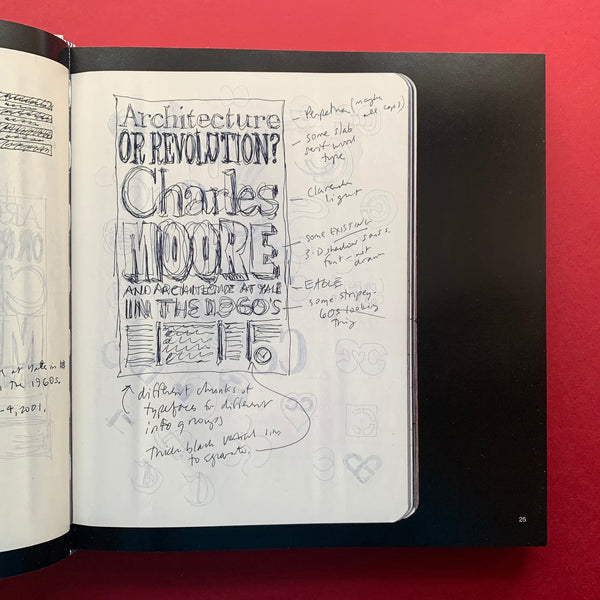 Architecture
OR REVOLUTION?
Charles
MOORE
AND ARCHITECTURE AT YALE
IN THE 1960'S
Perpetua (maybe
all caps)
some slab
serif wood
type
Clarendon
light
some EXISTING
3-D shadow sans
font - not
drawn
EAGLE
some stripey
60s looking
thing
different chunks of
typefaces for different
info groups
thick black vertical
to separate.
at Yale in
the 1960s.
4, 2001.
25